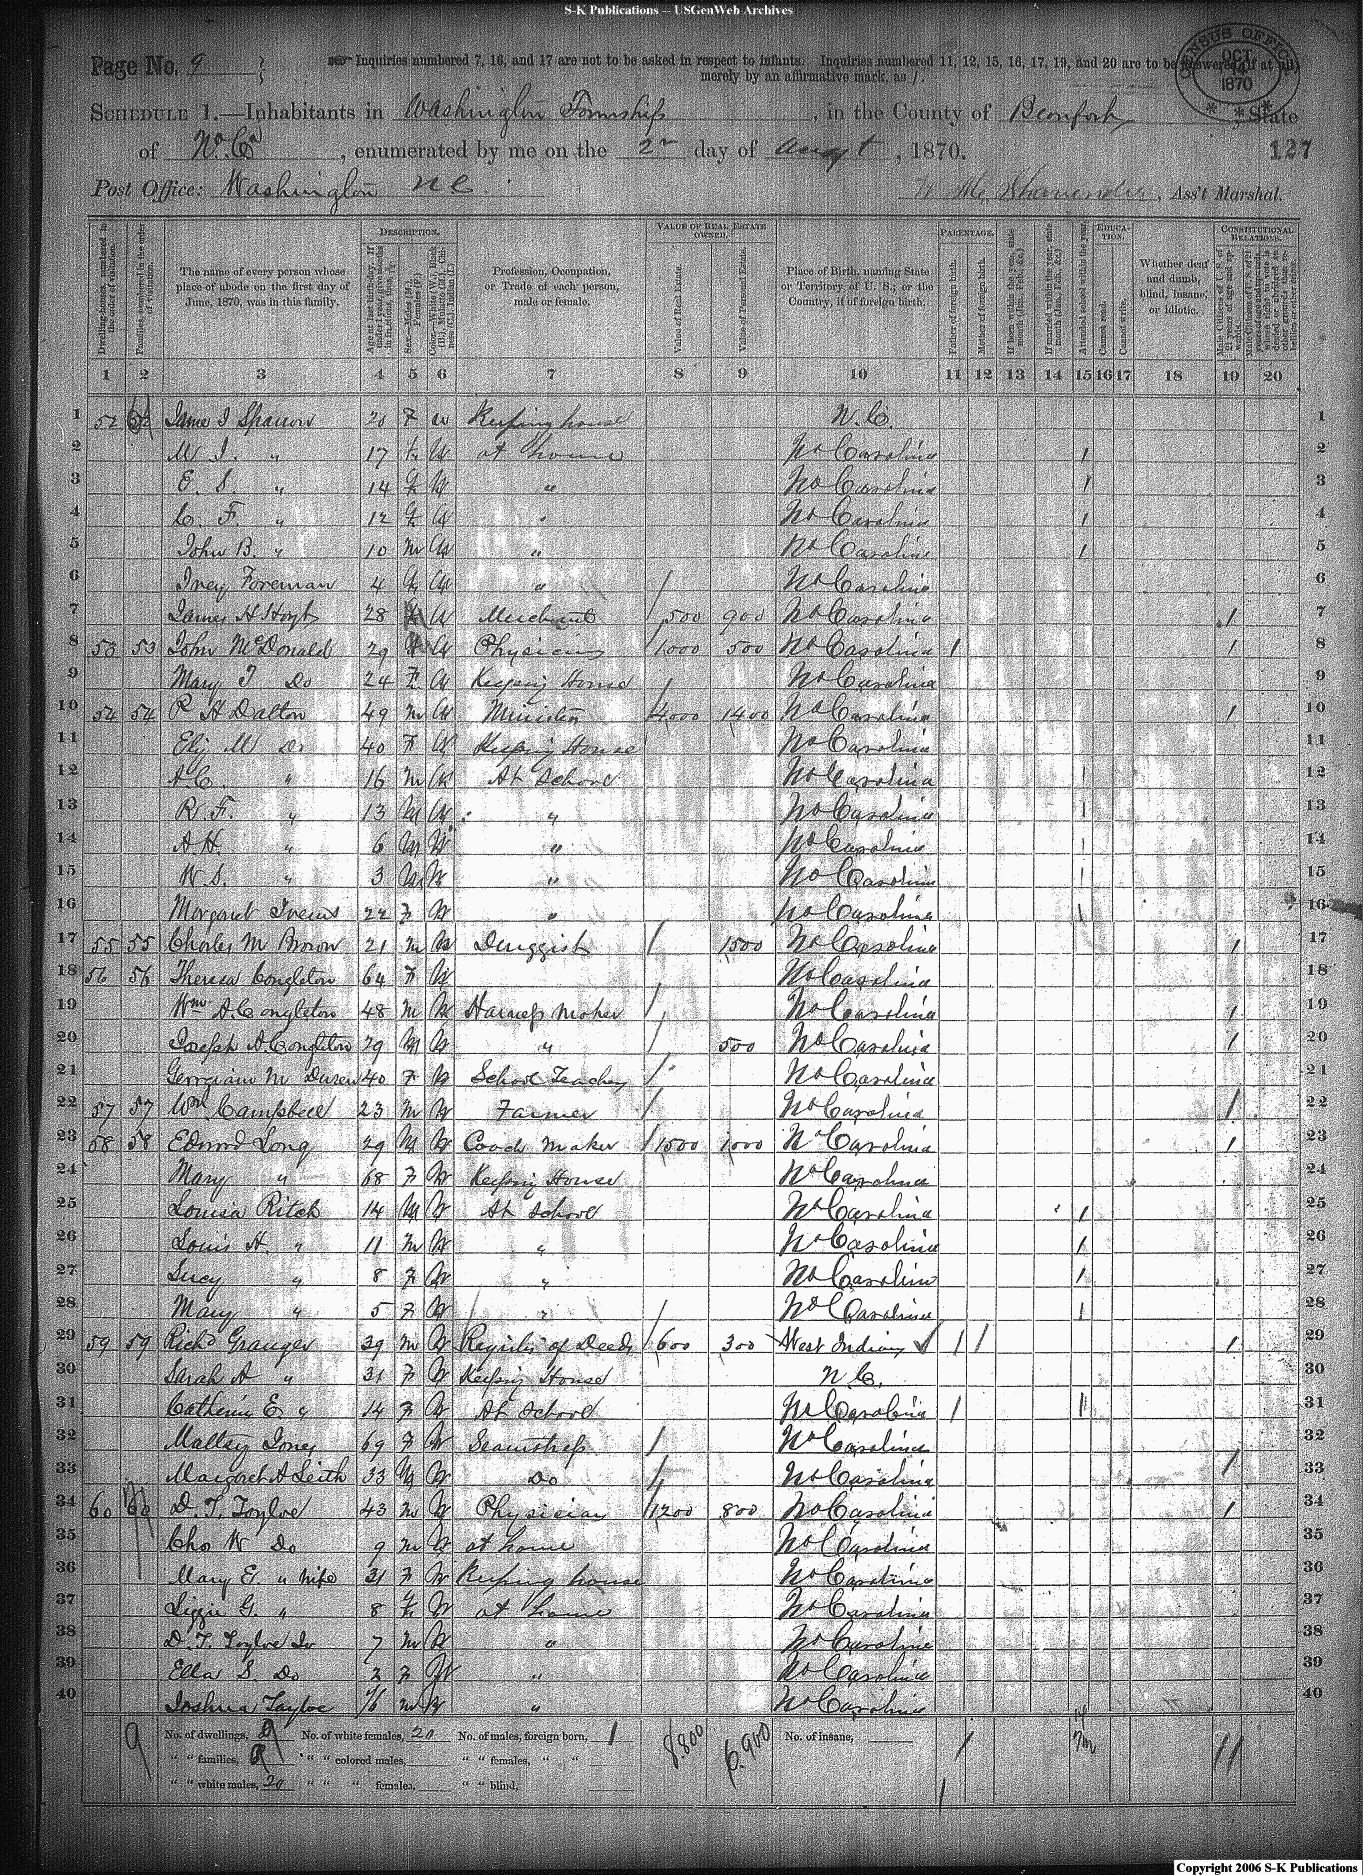 S-K Publications -- USGenWeb Archives
Page No. 9
Inquiries numbered 7, 16, and 17 are not to be asked in respect to infants. Inquiries numbered 11, 12, 15, 16, 17, 19, and 20 are to be answered (if at all)
merely by an affirmative mark, as /.
CENSUS OFFICE OCT 14 1870
SCHEDULE 1.—Inhabitants in Washington Township, in the County of Beaufort, State
of No. Ca, enumerated by me on the 2 day of August, 1870.
127
Post Office: Washington N C
Ass't Marshal.
Dwelling-houses, numbered in the order of visitation.
Families, numbered in the order of visitation.
The name of every person whose place of abode on the first day of June, 1870, was in this family.
DESCRIPTION.
Profession, Occupation, or Trade of each person, male or female.
VALUE OF REAL ESTATE OWNED.
Value of Real Estate.
Value of Personal Estate.
Place of Birth, naming State or Territory of U. S.; or the Country, if of foreign birth.
PARENTAGE.
Father of foreign birth.
Mother of foreign birth.
Attended school within the year.
EDUCATION.
Cannot read.
Cannot write.
Whether deaf and dumb, blind, insane, or idiotic.
CONSTITUTIONAL RELATIONS.
1 2 3 4 5 6 7 8 9 10 11 12 13 14 15 16 17 18 19 20
1 52 Sparrow 20 F W Keeping house N.C. 1
2 M J. " 17 W at home No Carolina 1 2
3 E. S. " 14 F W " No Carolina 1 3
4 C. F. " 12 F W " No Carolina 1 4
5 John B. " 10 M W " No Carolina 1 5
6 Foreman 4 F W " No Carolina 6
7 James H Hoyt 28 W Merchant 500 900 No Carolina 1 7
8 53 53 John McDonald 29 W Physician 1000 500 No Carolina 1 1 8
9 Mary T Do 24 F W Keeping House No Carolina 9
10 54 54 R H Dalton 49 M W Minister 4000 1400 No Carolina 1 10
11 Eliz M Do 40 F W Keeping House No Carolina 11
12 A C. " 16 M W At School No Carolina 1 12
13 R. F. " 13 M W " No Carolina 1 13
14 A H. " 6 M W " No Carolina 1 14
15 W. S. " 3 M W " No Carolina 1 15
16 Margaret 22 F W " No Carolina 1 16
17 55 55 Charles M Brown 21 M W Druggist / 1500 No Carolina 1 17
18 56 56 Theresa Congleton 64 F W No Carolina 18
19 Wm A. Congleton 48 M W Harness Maker / No Carolina 1 19
20 Joseph A. Congleton 29 M W " / 500 No Carolina 1 20
21 M 40 F W School Teacher / No Carolina 21
22 57 57 Wm Campbell 23 M W Farmer / No Carolina 1 22
23 58 58 Edward Long 29 M W Maker 1500 1000 No Carolina 1 23
24 Mary " 68 F W Keeping House No Carolina 24
25 Louisa Ritch 14 M W At School No Carolina 1 25
26 Louis H. " 11 M W " No Carolina 1 26
27 Lucy " 8 F W " No Carolina 1 27
28 Mary " 5 F W " No Carolina 1 28
29 59 59 Richd Granger 39 M W Register of Deeds 600 300 West Indies 1 1 1 29
30 Sarah A " 31 F W Keeping House N C. 30
31 Catherin E. " 14 F W At School No Carolina 1 1 31
32 Jones 69 F W Seamstress / No Carolina 32
33 Margaret A Leith 33 W Do / No Carolina / 33
34 60 60 D. T. Tayloe 43 M W Physician 1200 800 No Carolina 1 34
35 Cha W Do 9 M W at home No Carolina 35
36 Mary E " wife 31 F W Keeping house No Carolina 36
37 Lizzie G. " 8 F W at home No Carolina 37
38 D. T. Tayloe Jr 7 M W " No Carolina 38
39 Ella S. Do 2 F W " No Carolina 39
40 Joshua Tayloe M W " No Carolina 40
9 No. of dwellings, 9 No. of white females, 20 No. of males, foreign born, 1 8.800 6.900 No. of insane,
" " families, 9 " " colored males, " " females, " "
" " white males, 20 " " " females, " " blind,
Copyright 2006 S-K Publications